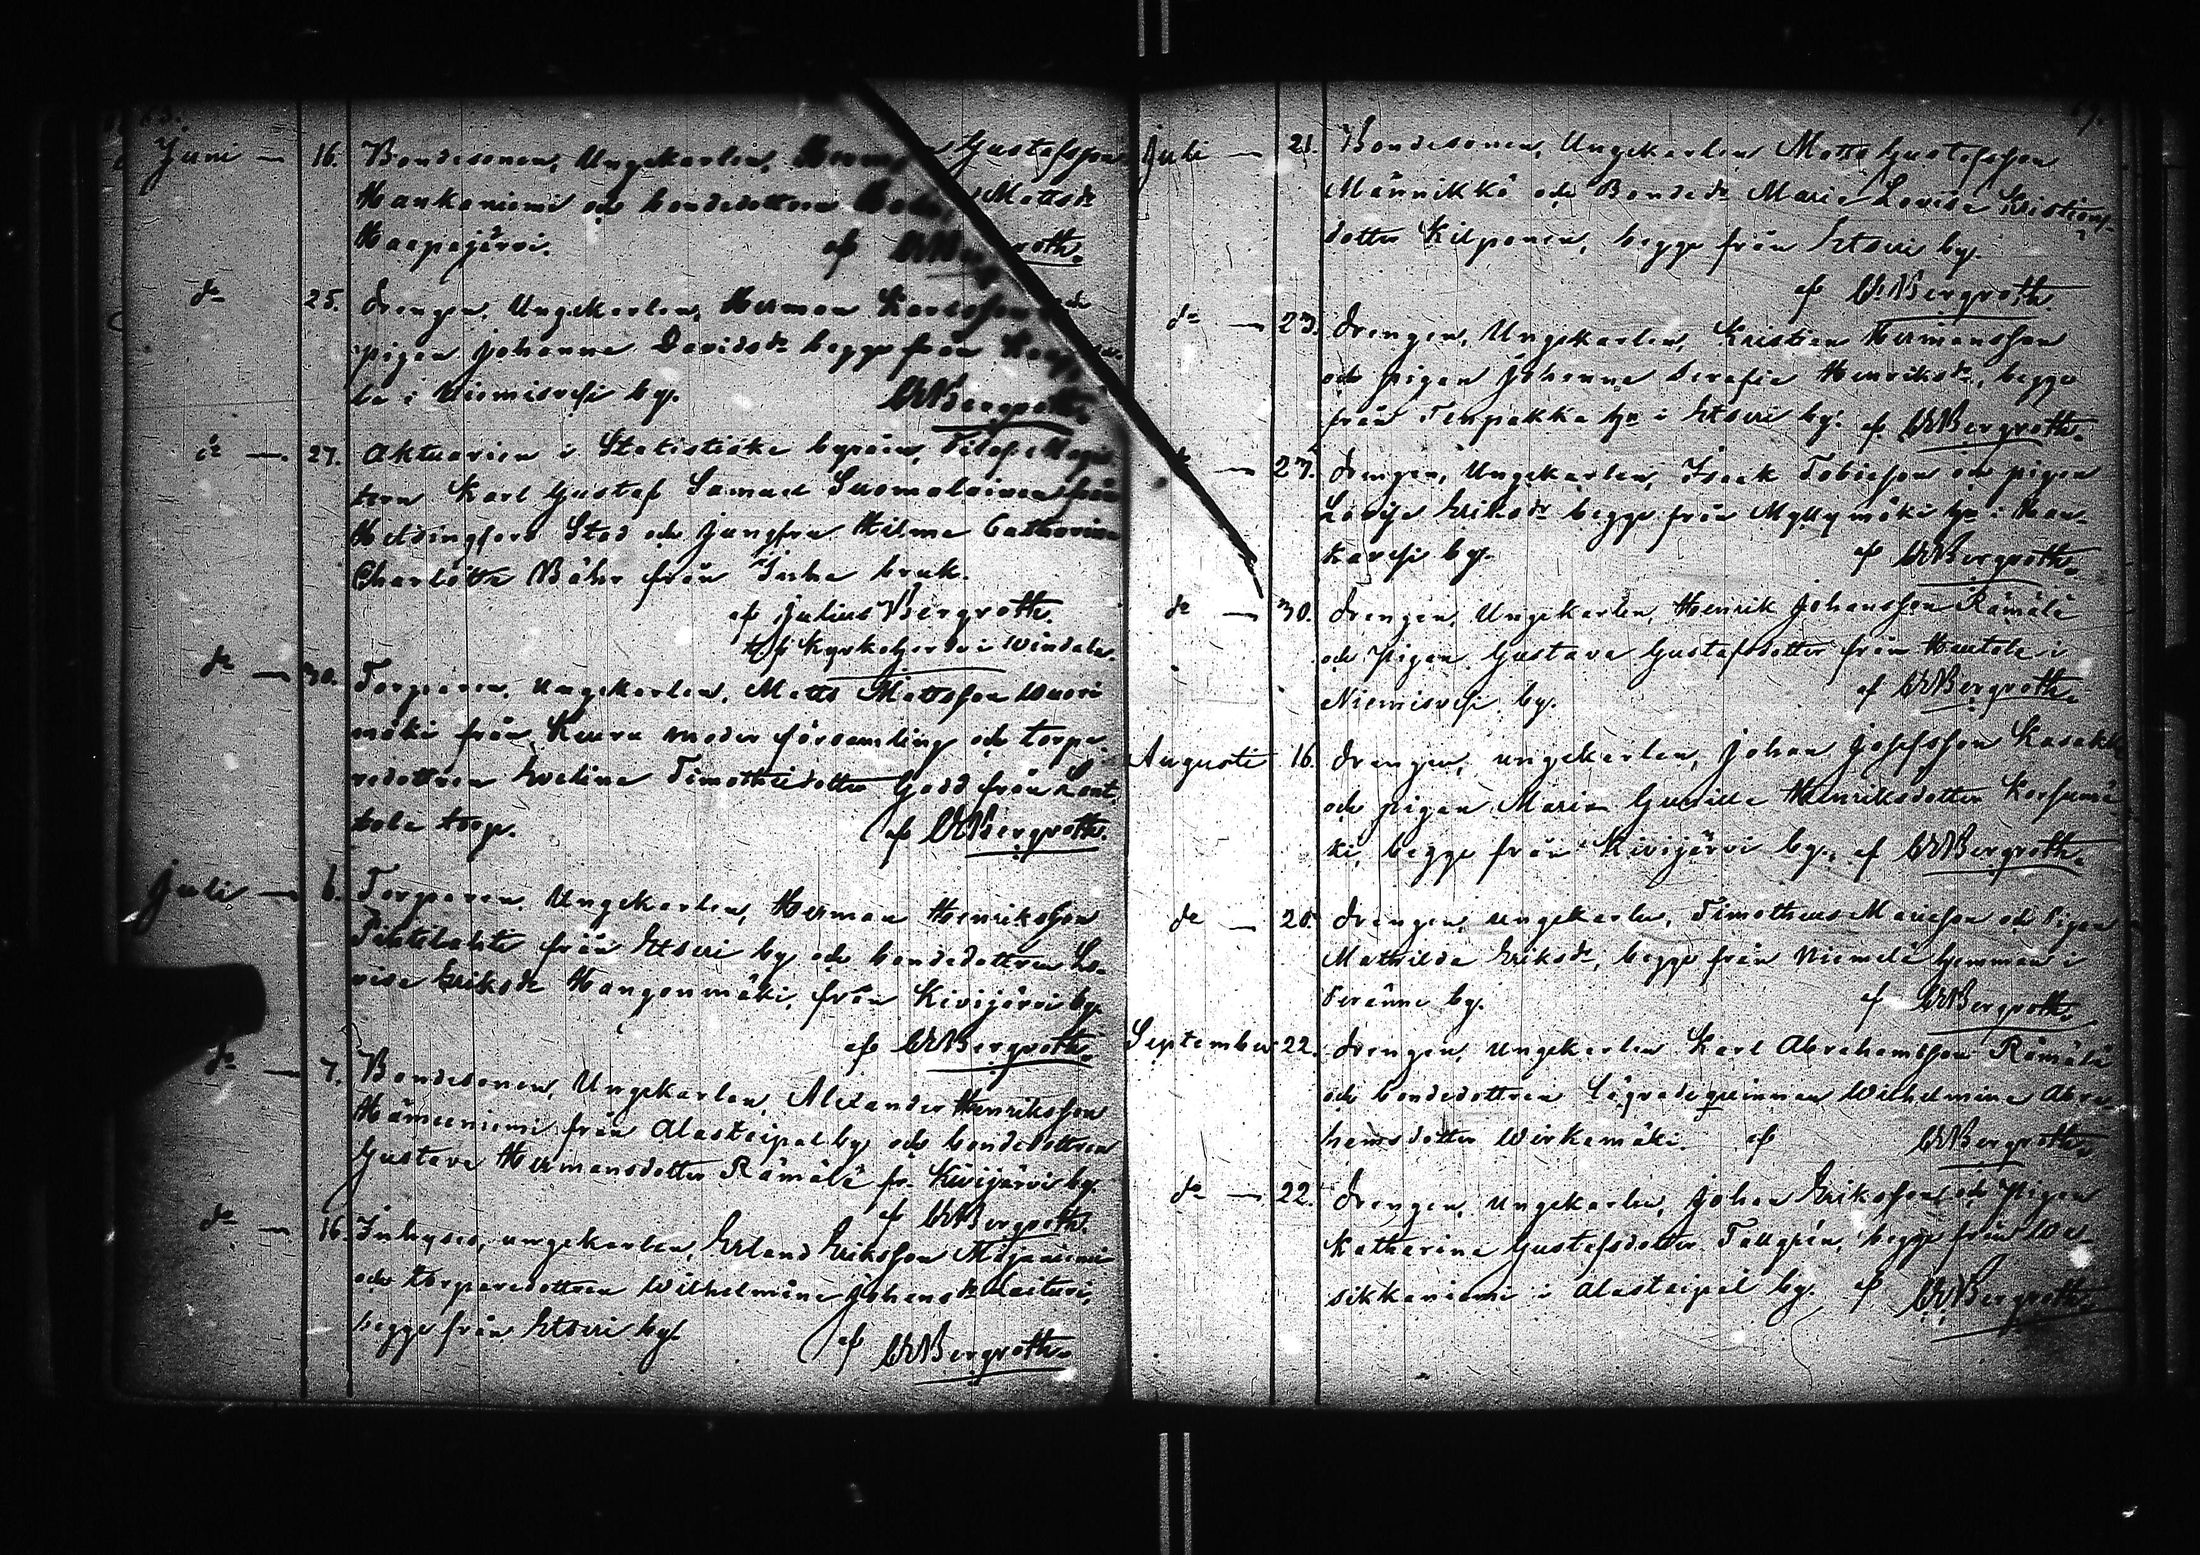 Juni — 16. Bondesonen, Ungekarlen, Herman Gustafsson
Hankaniemi och bondedottren Mattsdr
Haapajärvi. af Bergroth.
do 25. Drengen, Ungekarlen, Herman Karlsson och
pigan Johanna Davidsdr begge från
la i Niemisvesi by. Bergroth.
do — 27. Aktuarien i Statistiska byrån, Filos. Magis
tern Karl Gustaf Samuel Suomalainen från
Helsingfors Stad och Jungfru Hilma Catharina
Charlotta Bähr från Inha bruk.
af Julius Bergroth.
Kyrkoherde i Wirdois.
do — 30. Torparen, Ungekarlen, Matts Mattsson Wuori
mäki från Keuru moder församling och torpa-
redottren Evelina Timotheidotter Gädd från
tola torp. af Bergroth.
Juli — 6. Torparen, Ungekarlen, Herman Henriksson
från Etseri by och bondedottren Lo-
visa Eriksdr Hangonmäki, från Kivijärvi by.
af Bergroth.
do — 7. Bondesonen, Ungekarlen, Alexander Henriksson
Hämeeniemi från Alastaipal by och bondedottren
Gustava Hermansdotter Rämälä fr. Kivijärvi by.
af Bergroth.
do — 16. Inhyses, ungekarlen, Erland Eriksson
och torparedottren Wilhelmina Johansdr
begge från Etseri by. af Bergroth.
69.
Juli — 21. Bondesonen, Ungekarlen Matts Gustafsson
Männikkö och Bondedr Maria Lovisa Kristians-
dotter Kilponen, begge från Etseri by.
af Bergroth.
do — 23. Drengen, Ungekarlen, Kristian Hermansson
och pigan Johanna Serafia Henriksdr, begge
från hn i Etseri by. af Bergroth.
do — 27. Drengen, Ungekarlen, Isaak Tobiesson och pigan
Lovisa Eriksdr begge från Myllymäki hn i
by. af Bergroth.
do — 30. Drengen, Ungekarlen, Henrik Johansson Rämälä
och Pigan Gustava Gustafsdotter från Hautala i
Niemisvesi by. af Bergroth.
Augusti 16. Drengen, ungekarlen, Johan Josefsson
och pigan Maria Henriksdotter
ki, begge från Kivijärvi by. af Bergroth.
do — 20. Drengen, ungekarlen, Timotheus och Pigan
Mathilda Eriksdr, begge från Niemelä hemman i
Peränne by. af Bergroth.
September 22. Drengen, ungekarlen Karl Abrahamsson Rämälä
och bondedottren lägrade qvinnan Wilhelmina Abra-
hamsdotter Wirkamäki. af Bergroth.
do — 22. Drengen, Ungekarlen, Johan Eriksson och Pigan
Katharina Gustafsdotter Tallgrén, begge från Wa-
sikkaniemi i Alastaipal by. af Bergroth.